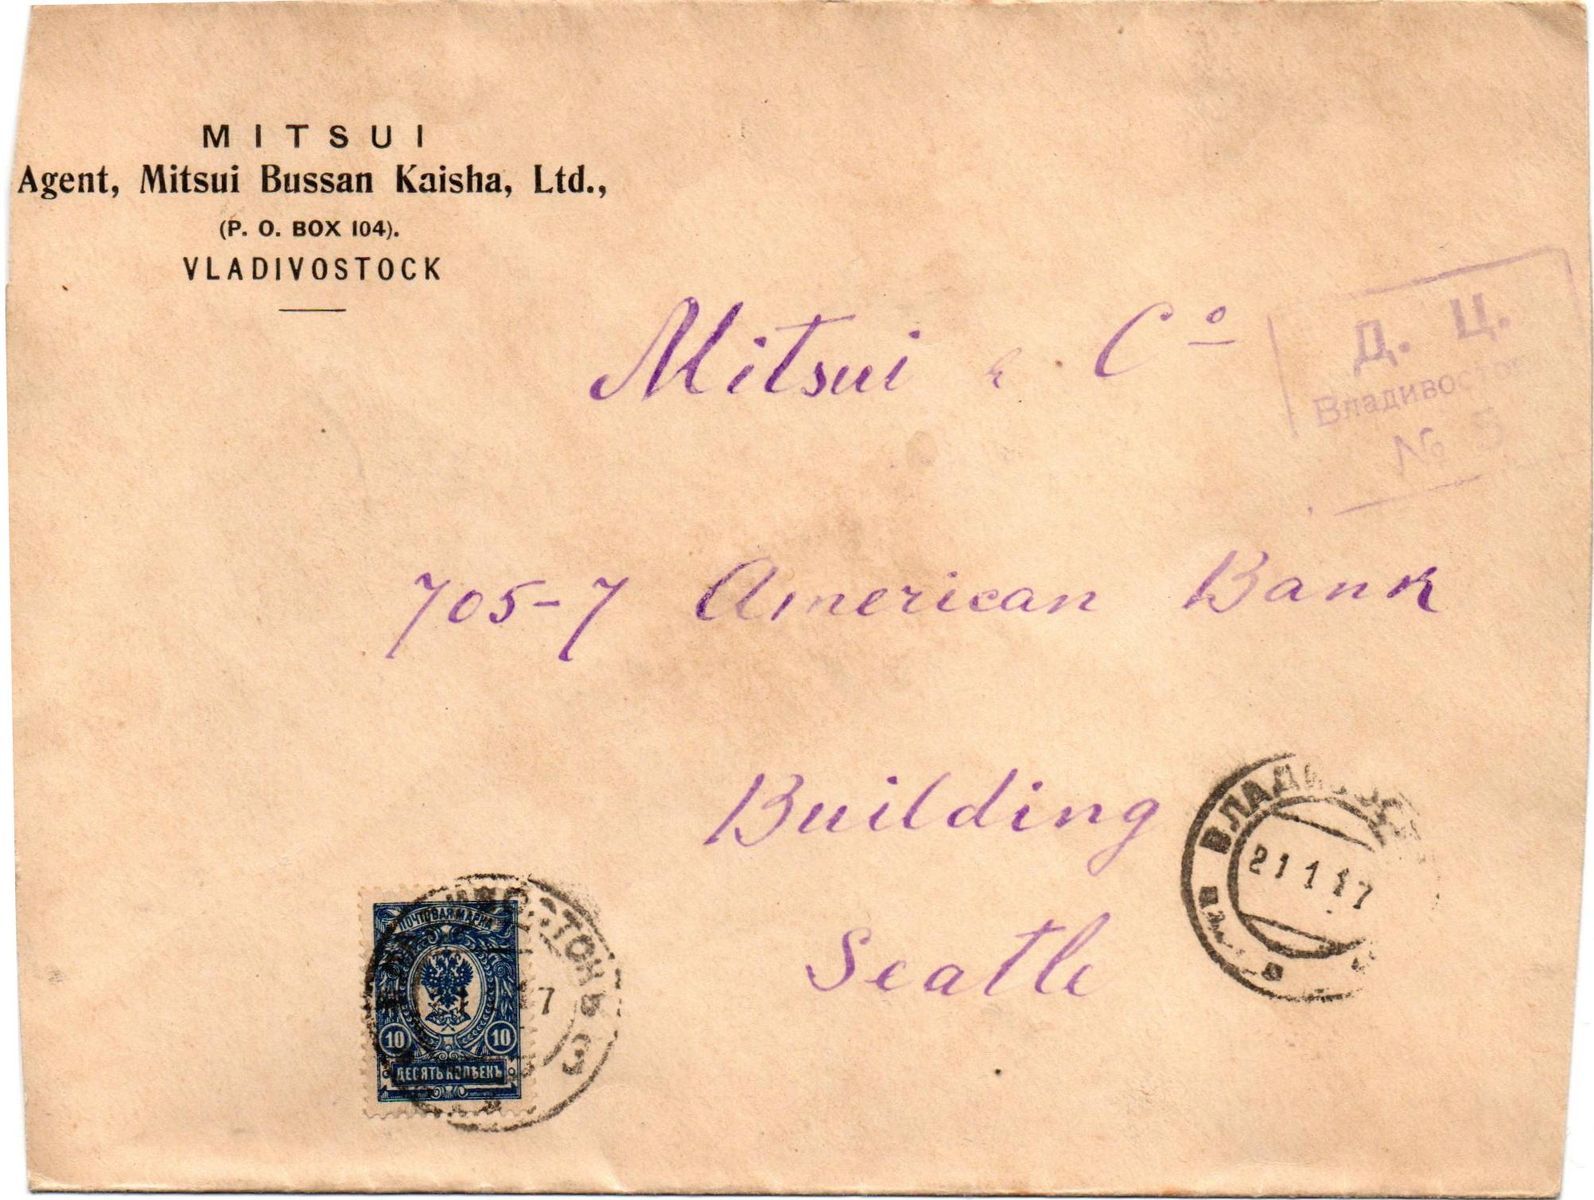 MITSUI
Agent, Mitsui Bussan Kaisha, Ltd.,
(P. O. BOX 104).
VLADIVOSTOCK
Mitsui & Cº
Д. Ц.
Владивосток
№ 5
705-7 American Bank
Building
Seatle
21 1 17
ПОЧТОВАЯ МАРКА
10 10
ДЕСЯТЬ КОПѢЕКЪ